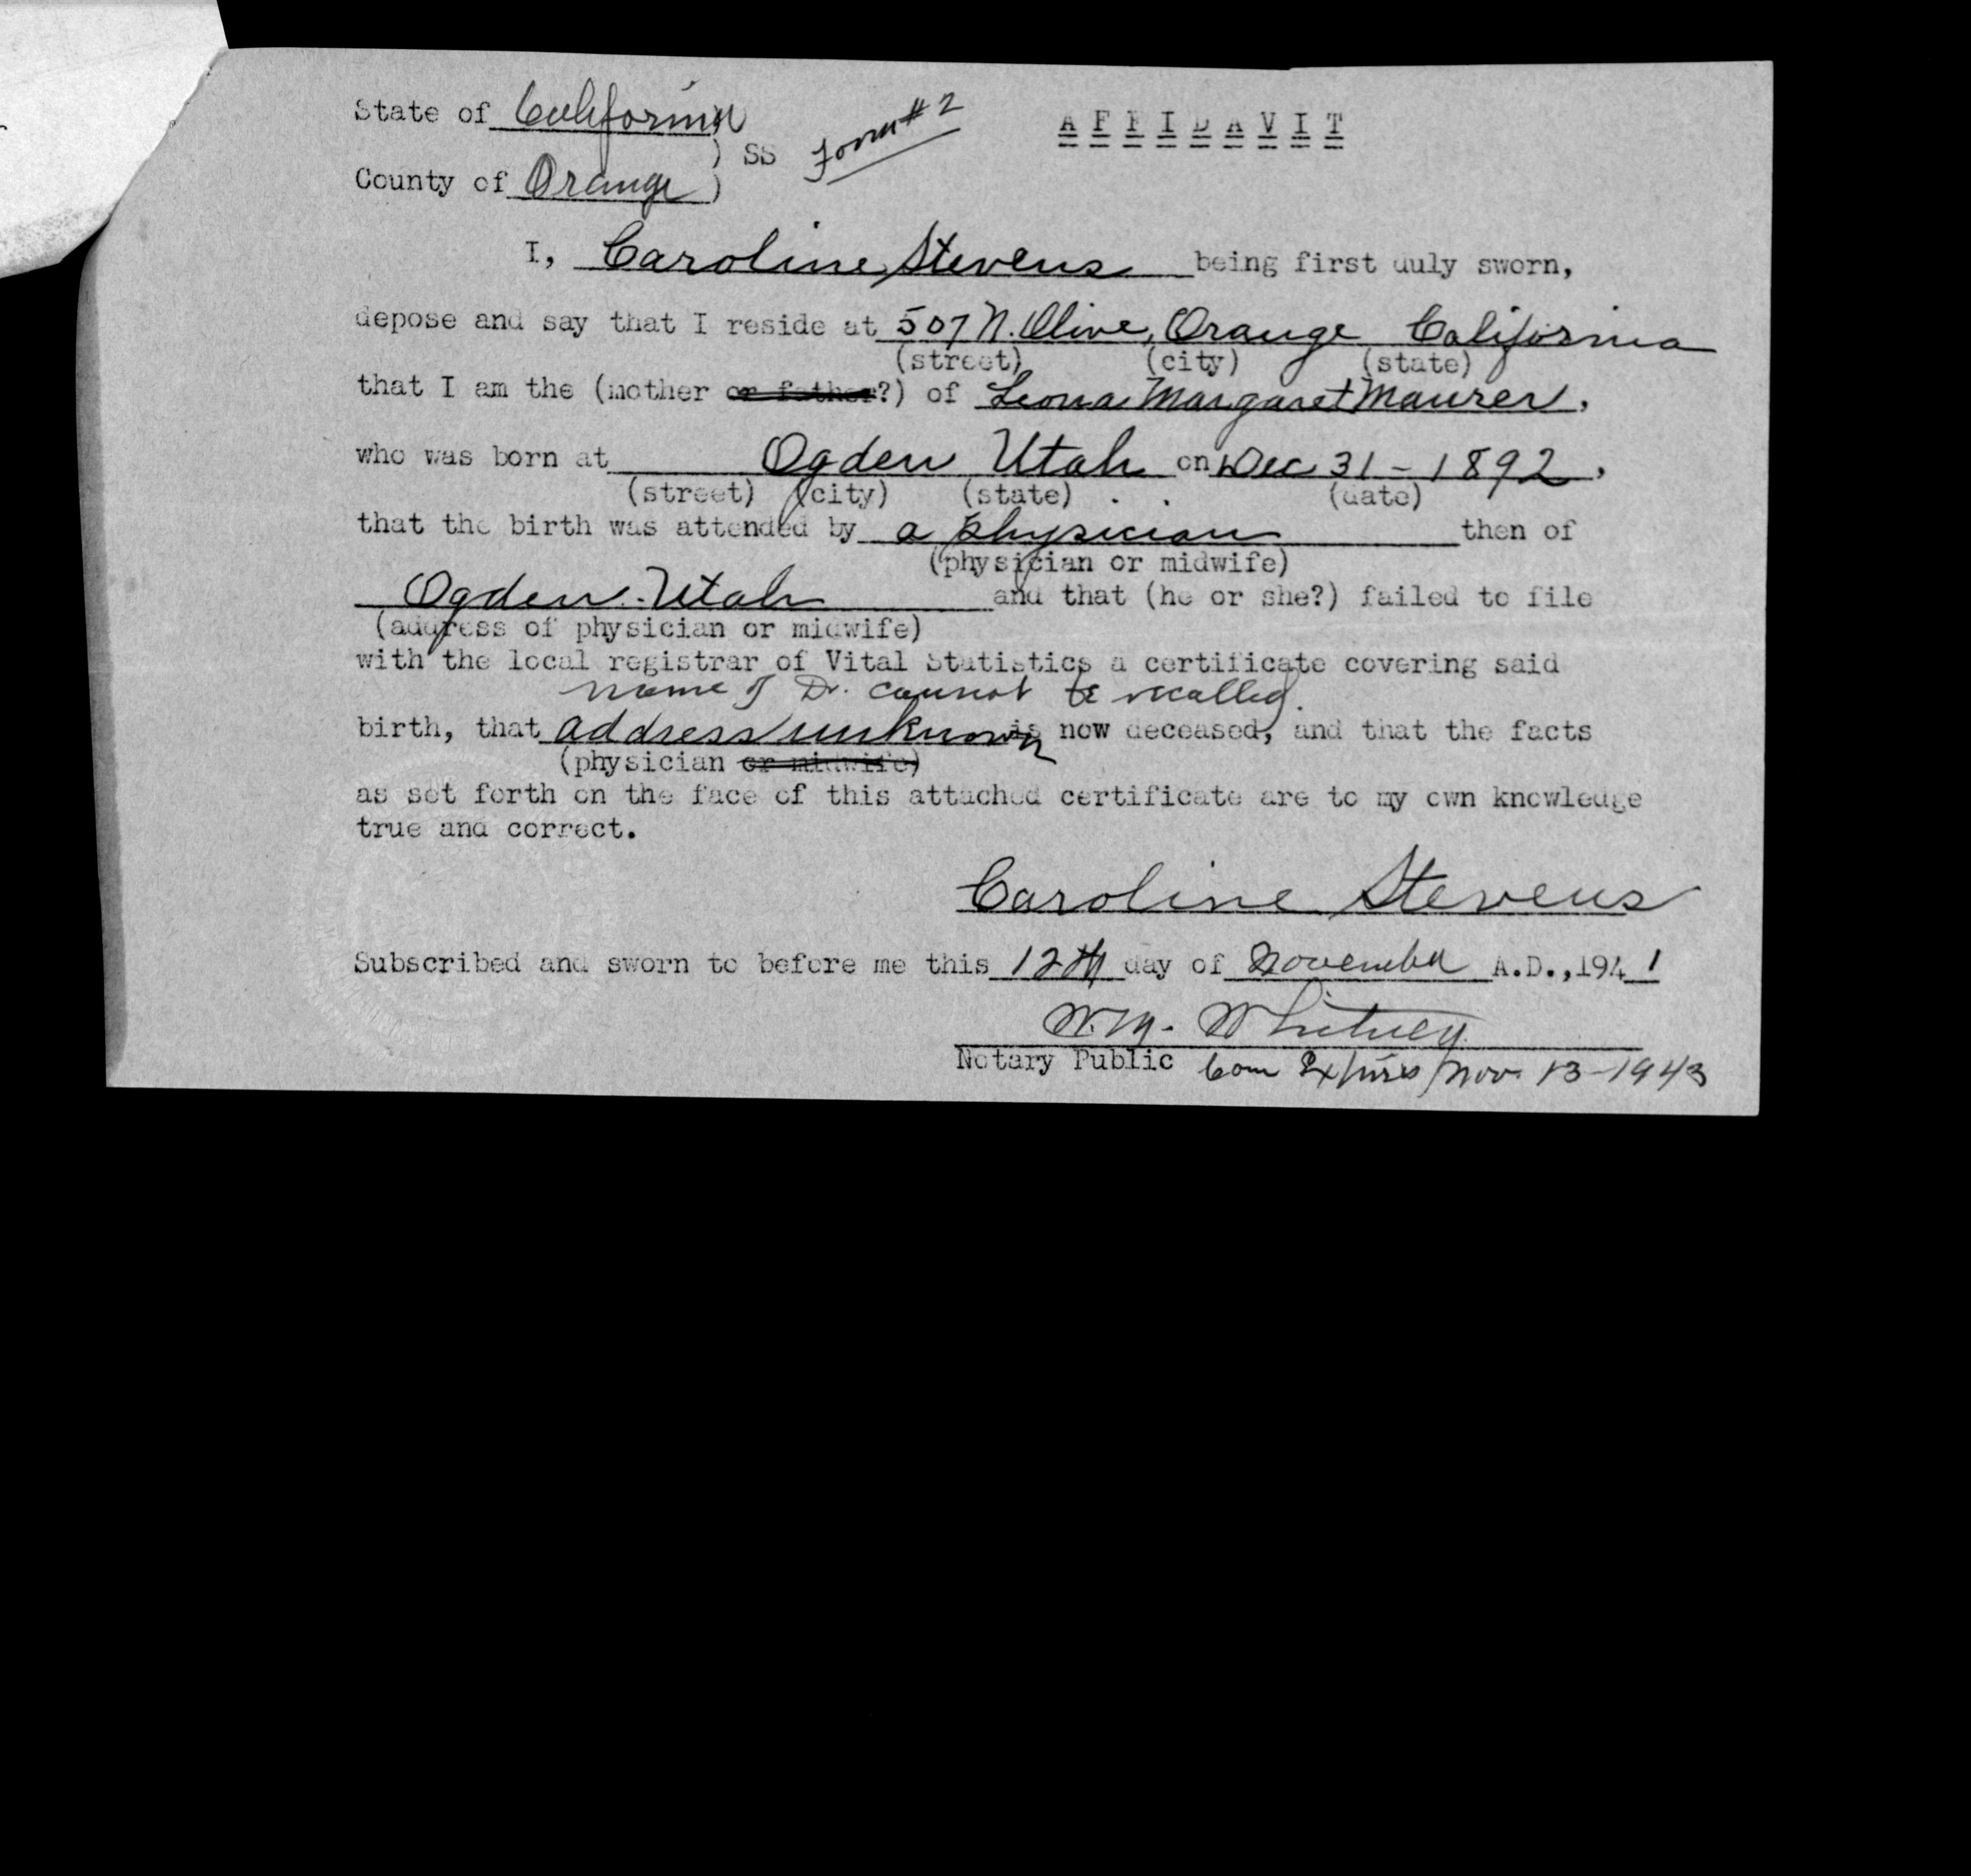 State of California ) A F F I D A V I T
) SS Form #2
County of Orange )
I, Caroline Stevens being first duly sworn,
depose and say that I reside at 507 N. Olive, Orange California
(street) (city) (state)
that I am the (mother or father?) of Leona Margaret Maurer,
who was born at Ogden Utah on Dec 31 - 1892,
(street) (city) (state) (date)
that the birth was attended by a physician then of
(physician or midwife)
Ogden - Utah and that (he or she?) failed to file
(address of physician or midwife)
with the local registrar of Vital Statistics a certificate covering said
name of Dr. cannot be recalled.
birth, that address unknown is now deceased, and that the facts
(physician or midwife)
as set forth on the face of this attached certificate are to my own knowledge
true and correct.
Caroline Stevens
Subscribed and sworn to before me this 12th day of November A.D.,1941
W.M. Whitney
Notary Public Com Expires Nov. 13-1943